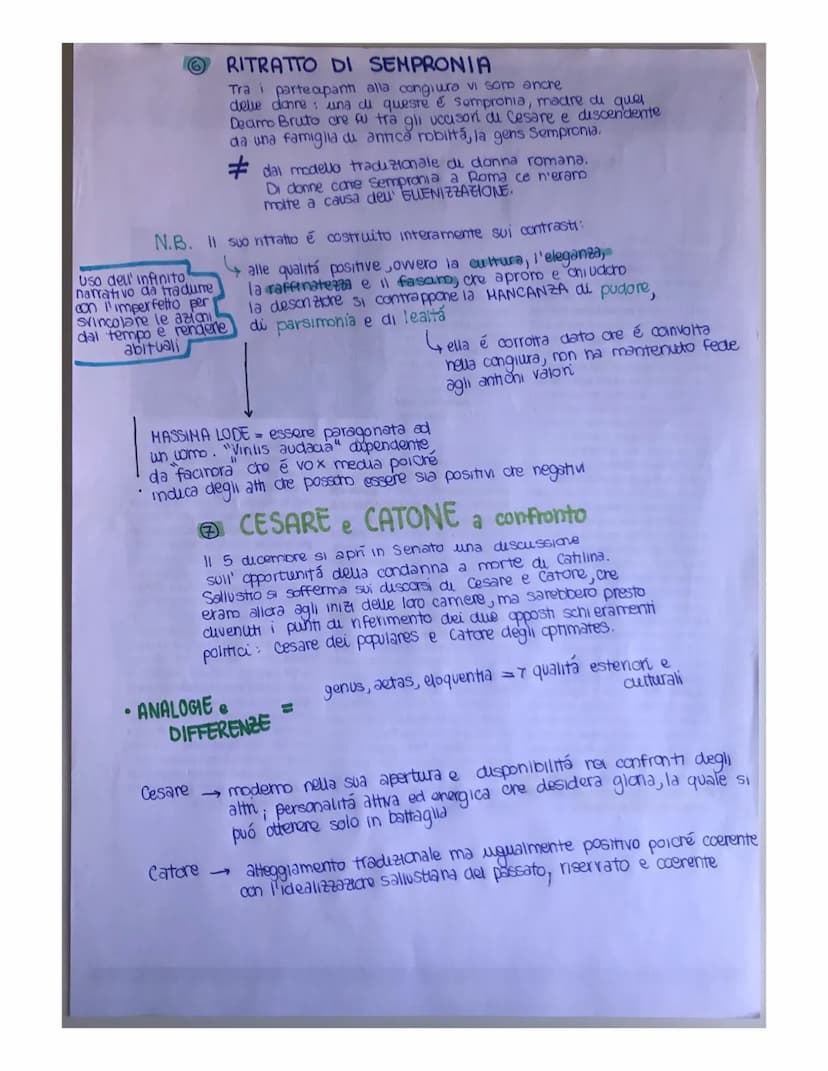 ⑥ RITRATTO DI SEMPRONIA
Tra i partecipanti alla congiura vi sono anche
delle donne: una di queste é Sempronia, madre di quel
Decimo Bruto che fu tra gli uccisori di Cesare e discendente
da una famiglia di antica nobiltá, la gens Sempronia.
≠ dal modello tradizionale di donna romana.
Di donne come Sempronia a Roma ce n'erano
molte a causa dell' ELLENIZZAZIONE.
N.B. Il suo ritratto é costruito interamente sui contrasti:
↳ alle qualitá positive, ovvero la cultura, l'eleganza,
la raffinatezza e il fascino, che aprono e chiudono
la descrizione si contrappone la MANCANZA di pudore,
di parsimonia e di lealtá
Uso dell'infinito
narrativo da tradurre
con l'imperfetto per
svincolare le azioni
dal tempo e renderle
abituali
↳ ella é corrotta dato che é coinvolta
nella congiura, non ha mantenuto fede
agli antichi valori
MASSIMA LODE = essere paragonata ad
un uomo. "Virilis audacia" dipendente
da "facinora" che é vox media poiché
indica degli atti che possono essere sia positivi che negativi
⑦ CESARE e CATONE a confronto
Il 5 dicembre si aprí in Senato una discussione
sull' opportunitá della condanna a morte di Catilina.
Sallustio si sofferma sui discorsi di Cesare e Catone, che
erano allora agli inizi delle loro carriere, ma sarebbero presto
divenuti i punti di riferimento dei due opposti schieramenti
politici: Cesare dei populares e Catone degli optimates.
• ANALOGIE e
DIFFERENZE =
genus, aetas, eloquentia => qualitá esteriori e
culturali
Cesare → moderno nella sua apertura e disponibilitá nei confronti degli
altri; personalitá attiva ed energica che desidera gloria, la quale si
puó ottenere solo in battaglia
Catone → atteggiamento tradizionale ma ugualmente positivo poiché coerente
con l'idealizzazione sallustiana del passato, riservato e coerente